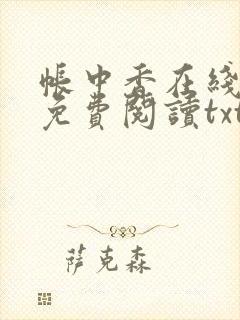 帳中香在綫
免費閱讀txt
薩克森